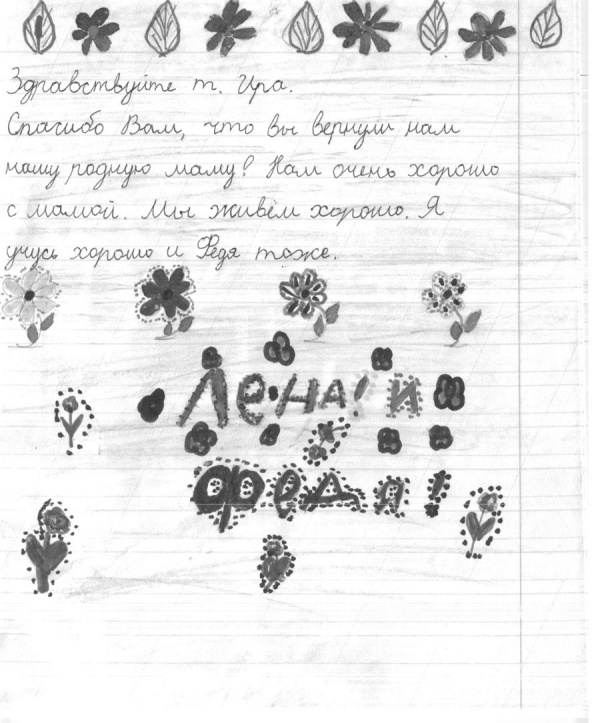 Здравствуйте т. Ира.
Спасибо Вам, что вы вернули нам
нашу родную маму! Нам очень хорошо
с мамой. Мы живём хорошо. Я
учусь хорошо и Федя тоже.
Лена! и
Федя!